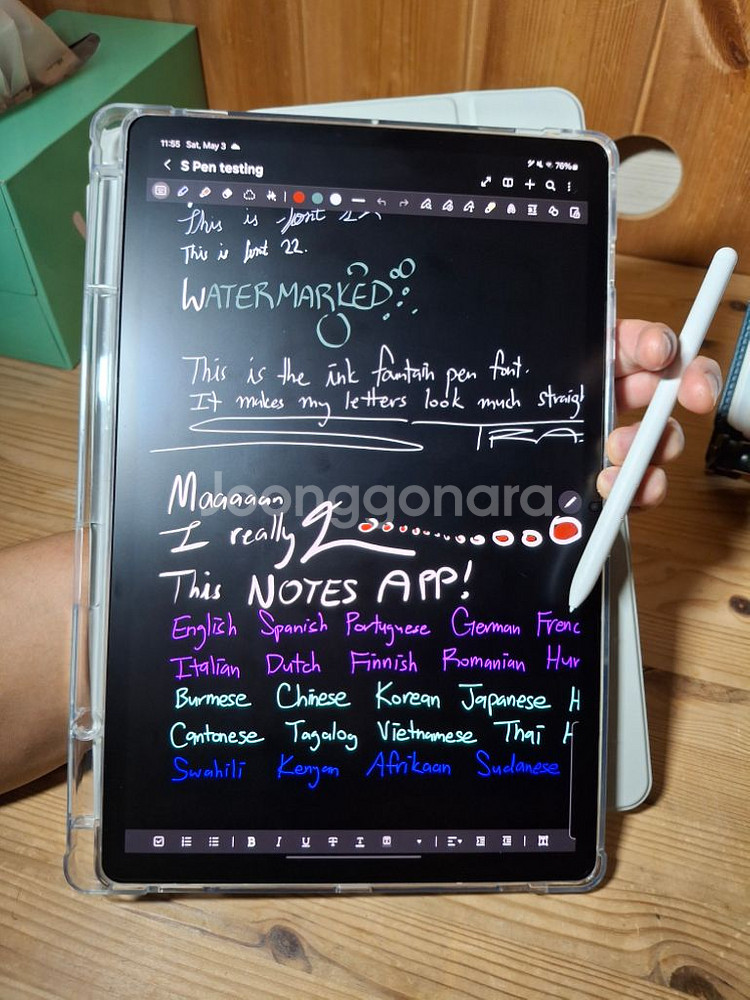 11:55 Sat, May 3
76%
S Pen testing
This is font
This is font 22.
WATERMARKED
This is the ink fountain pen font.
It makes my letters look much straig
TRA
Maaaaaan
Joonggonara
I really
This NOTES APP!
English Spanish Portuguese German Frenc
Italian Dutch Finnish Romanian Hun
Burmese Chinese Korean Japanese H
Cantonese Tagalog Vietnamese Thai
Swahili Kenyan Afrikaan Sudanese
B I U T T